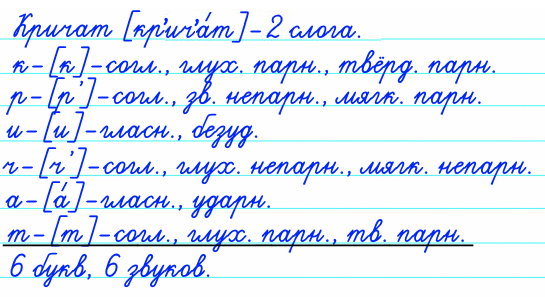 Кричат [кр'ич'а́т]-2 слога.
к-[к]-согл., глух. парн., твёрд. парн.
р-[р']-согл., зв. непарн., мягк. парн.
и-[и]-гласн., безуд.
ч-[ч']-согл., глух. непарн., мягк. непарн.
а-[а́]-гласн., ударн.
т-[т]-согл., глух. парн., тв. парн.
6 букв, 6 звуков.